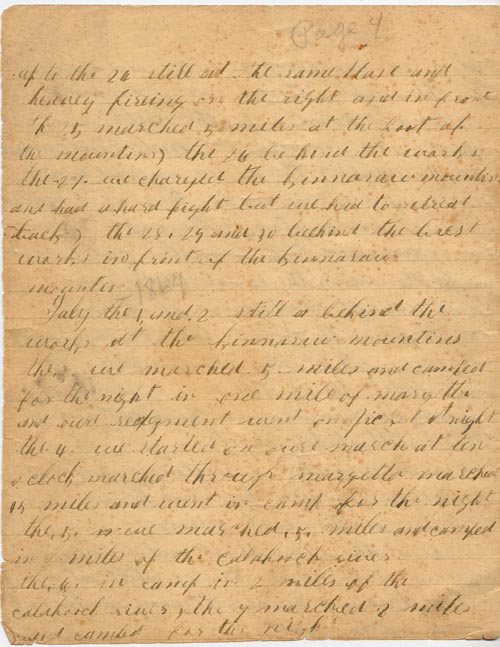 Page 4
up to the 24 still at the same place and
heavey fireing on the right and in front
the 25 marched 5 miles at the foot of
the mountins) the 26 behind the works
the 27. we charged the kinnaraw mountin
and had a hard fight but we had to retreat
back) the 28. 29 and 30 behind the brest
works in front of the kinnaraw
mountin
1864
July the 1 and 2 still a behind the
works at the kinnaraw mountins
the we marched 5. miles and camped
for the night in one mile of maryetta
and oure regment went on picket at night
the 4. we started on oure march at ten
oclock marched through maryetta marched
15 miles and went in camp for the night
the 5. we marched. 5. miles and camped
in 2 miles of the catahooch river
the 6. in camp in 2 miles of the
catahooch river, the 7 marched 2 miles
and camted for the night